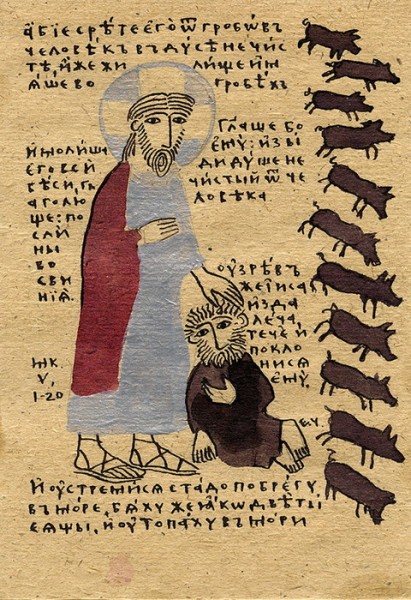 А҆БІЕ СРѢТЕ Е҆ГО̀ Ѿ ГРОБѠВЪ
ЧЕЛОВѢКЪ ВЪ ДꙊСѢ НЕЧИС
ТѢ, И҆ЖЕ ЖИЛИЩЕ И҆М
ѦШЕ ВО ГРОБѢХЪ
ГЛАШЕ БО
ЕМꙊ: ИЗЫ
ДИ ДꙊШЕ НЕ
ЧИСТЫЙ Ѿ ЧЕ
ЛОВѢКА
И МОЛИША
ЕГО ВСИ
БѢСИ, ГЛА
ГОЛЮ
ЩЕ: ПО
СЛИ
НЫ
ВО
СВИ
НІѦ.
ОУЗРѢВЪ
ЖЕ ІИСА
ИЗДА
ЛЕЧА,
ТЕЧЕ И
ПОКЛО
НИСѦ
ЕМꙊ,
МК
V,
1-20
Е.Ѵ.
И ОУСТРЕМИСѦ СТАДО ПО БРЕГꙊ
ВЪ МОРЕ, БѦХꙊ ЖЕ ІАКѠ ДВѢ ТЫ
СѦЩЫ, И ОУТОПАХꙊ ВЪ МОРИ